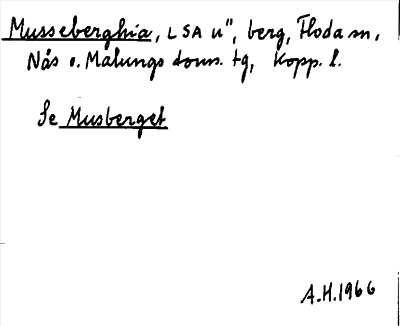 Musseberghia, LSA u", berg, Floda sn,
Nås o. Malungs doms. tg, Kopp. l.
Se Musberget
A.H.1966